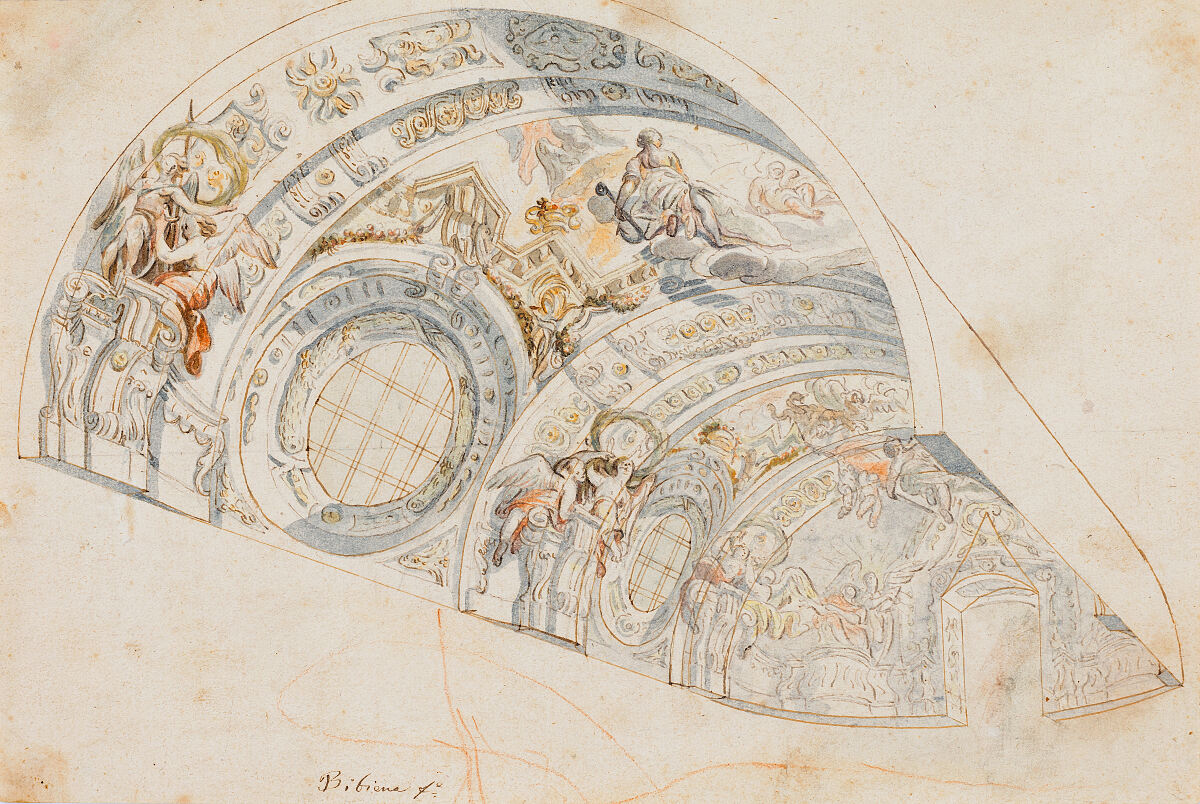 Bibiena f.º